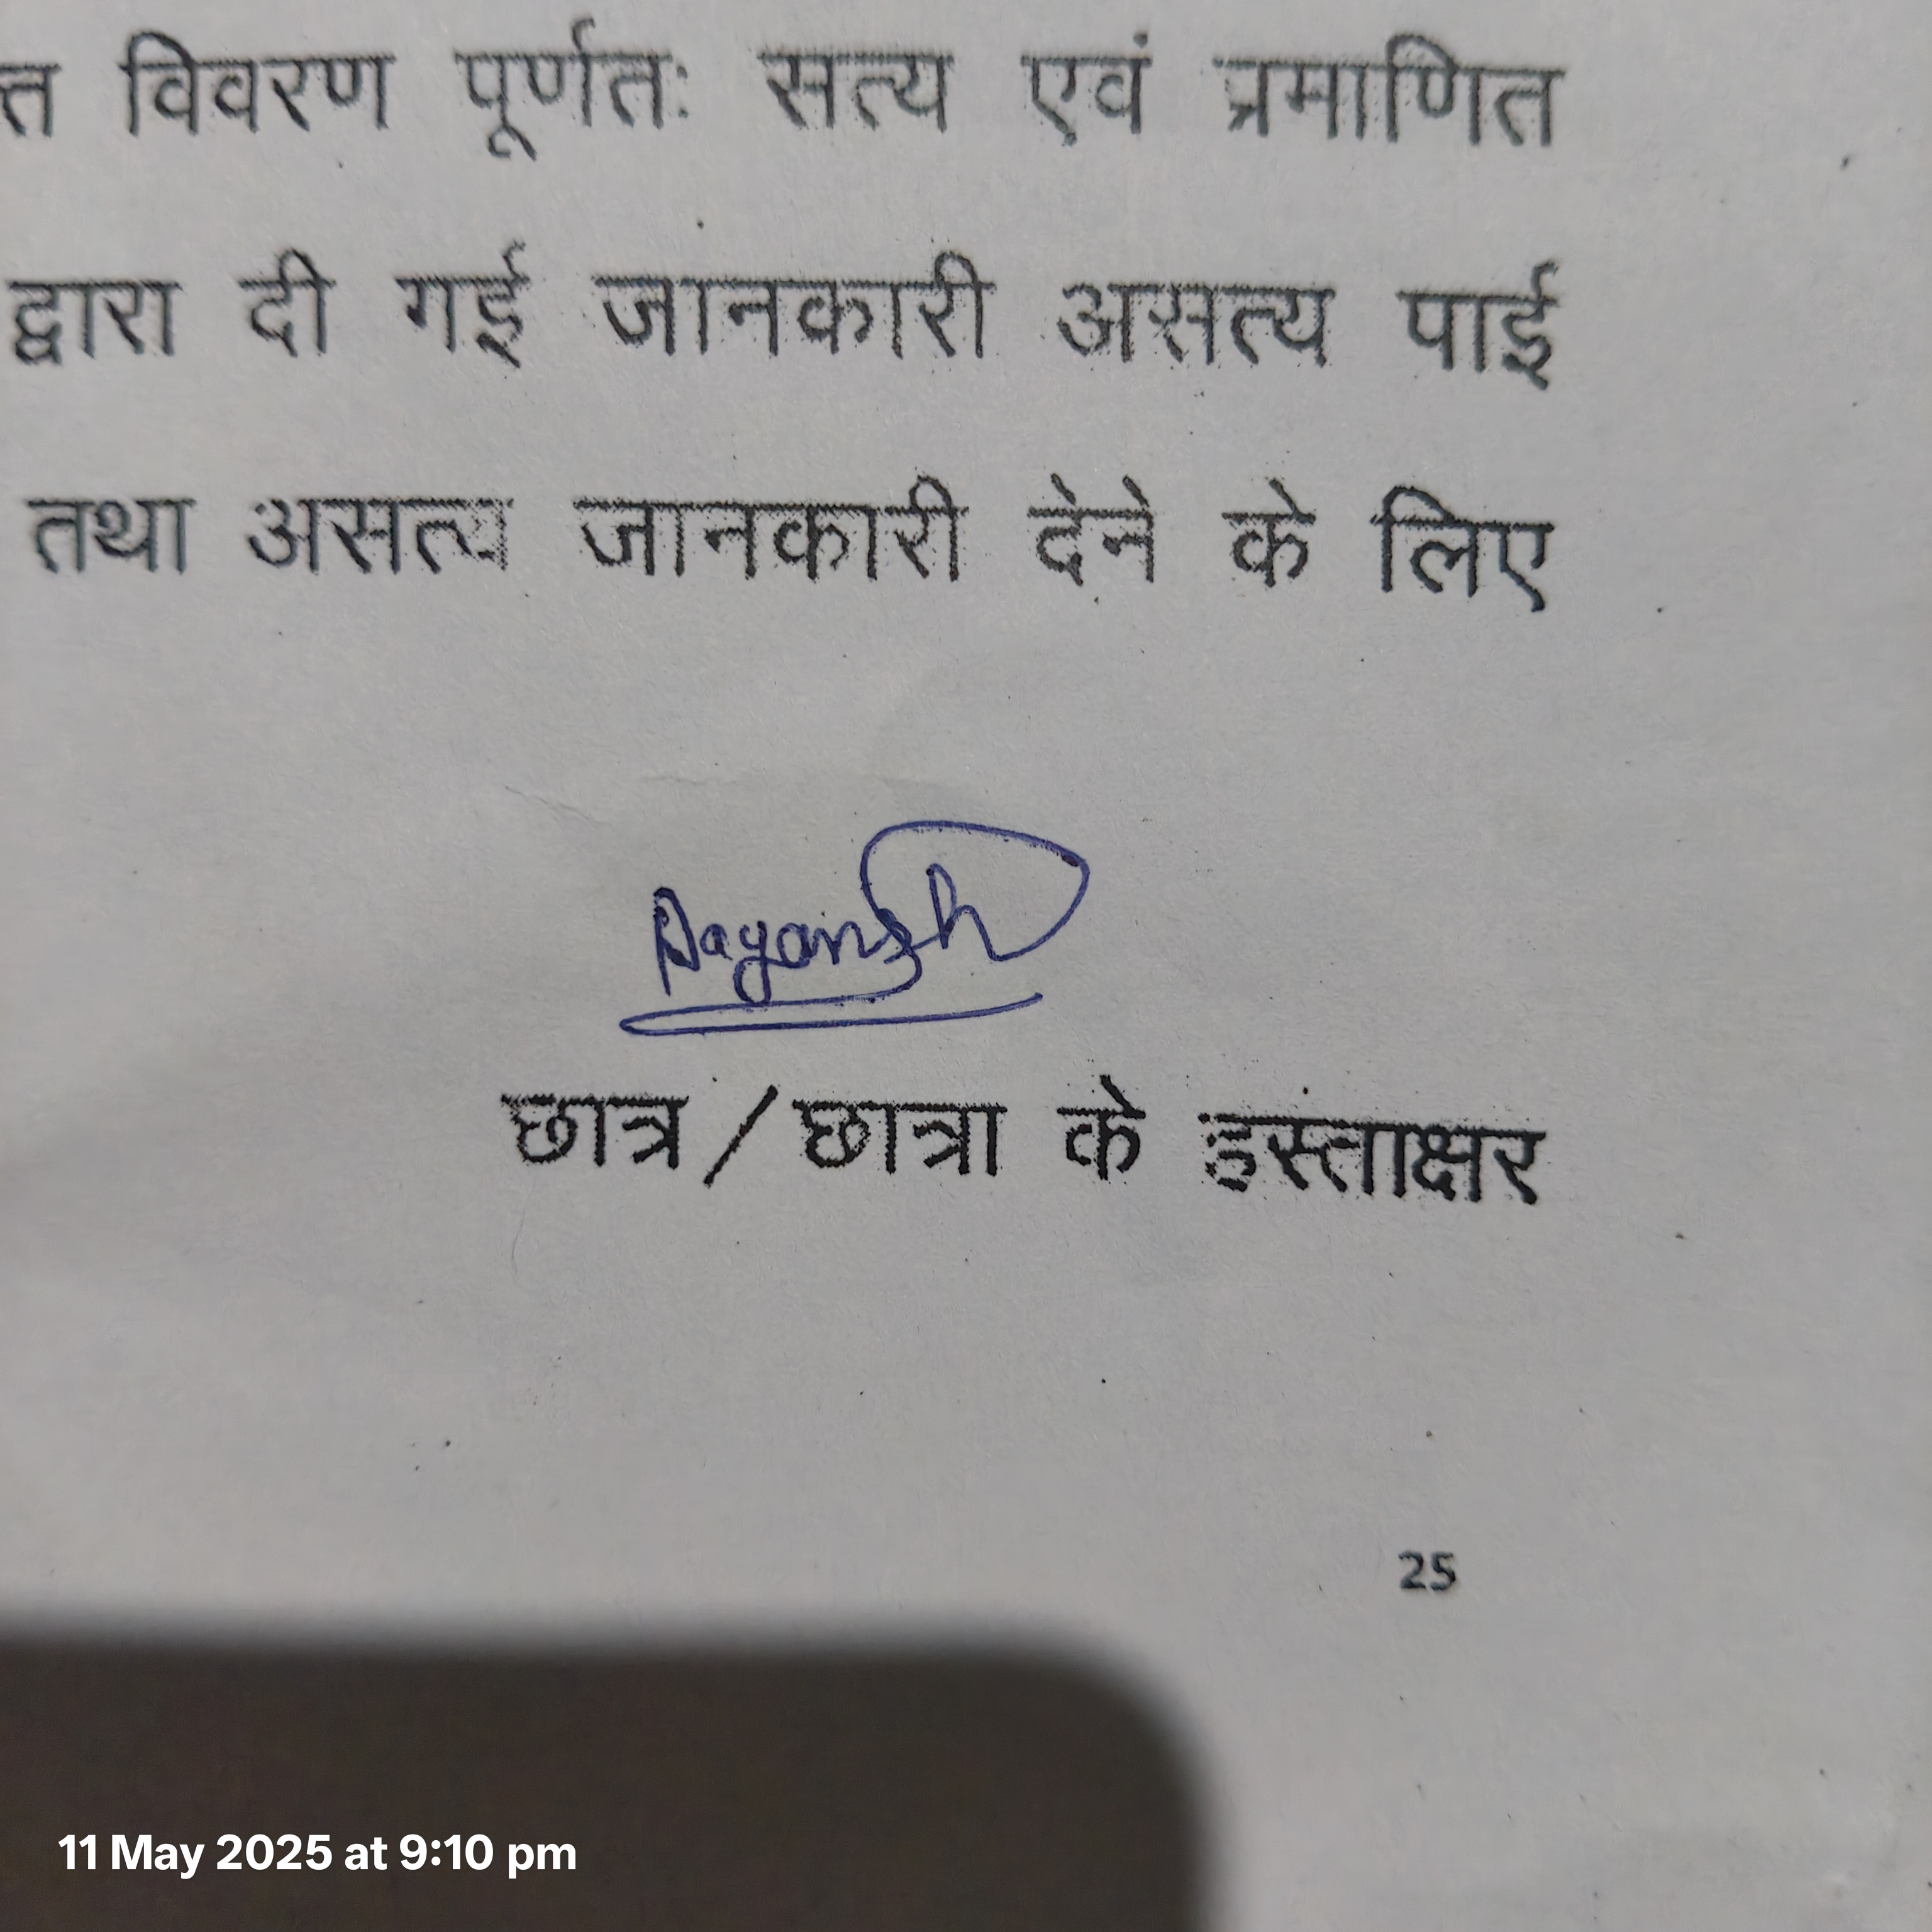 त विवरण पूर्णतः सत्य एवं प्रमाणित
द्वारा दी गई जानकारी असत्य पाई
तथा असत्य जानकारी देने के लिए
Dayansh
छात्र / छात्रा के हस्ताक्षर
25
11 May 2025 at 9:10 pm